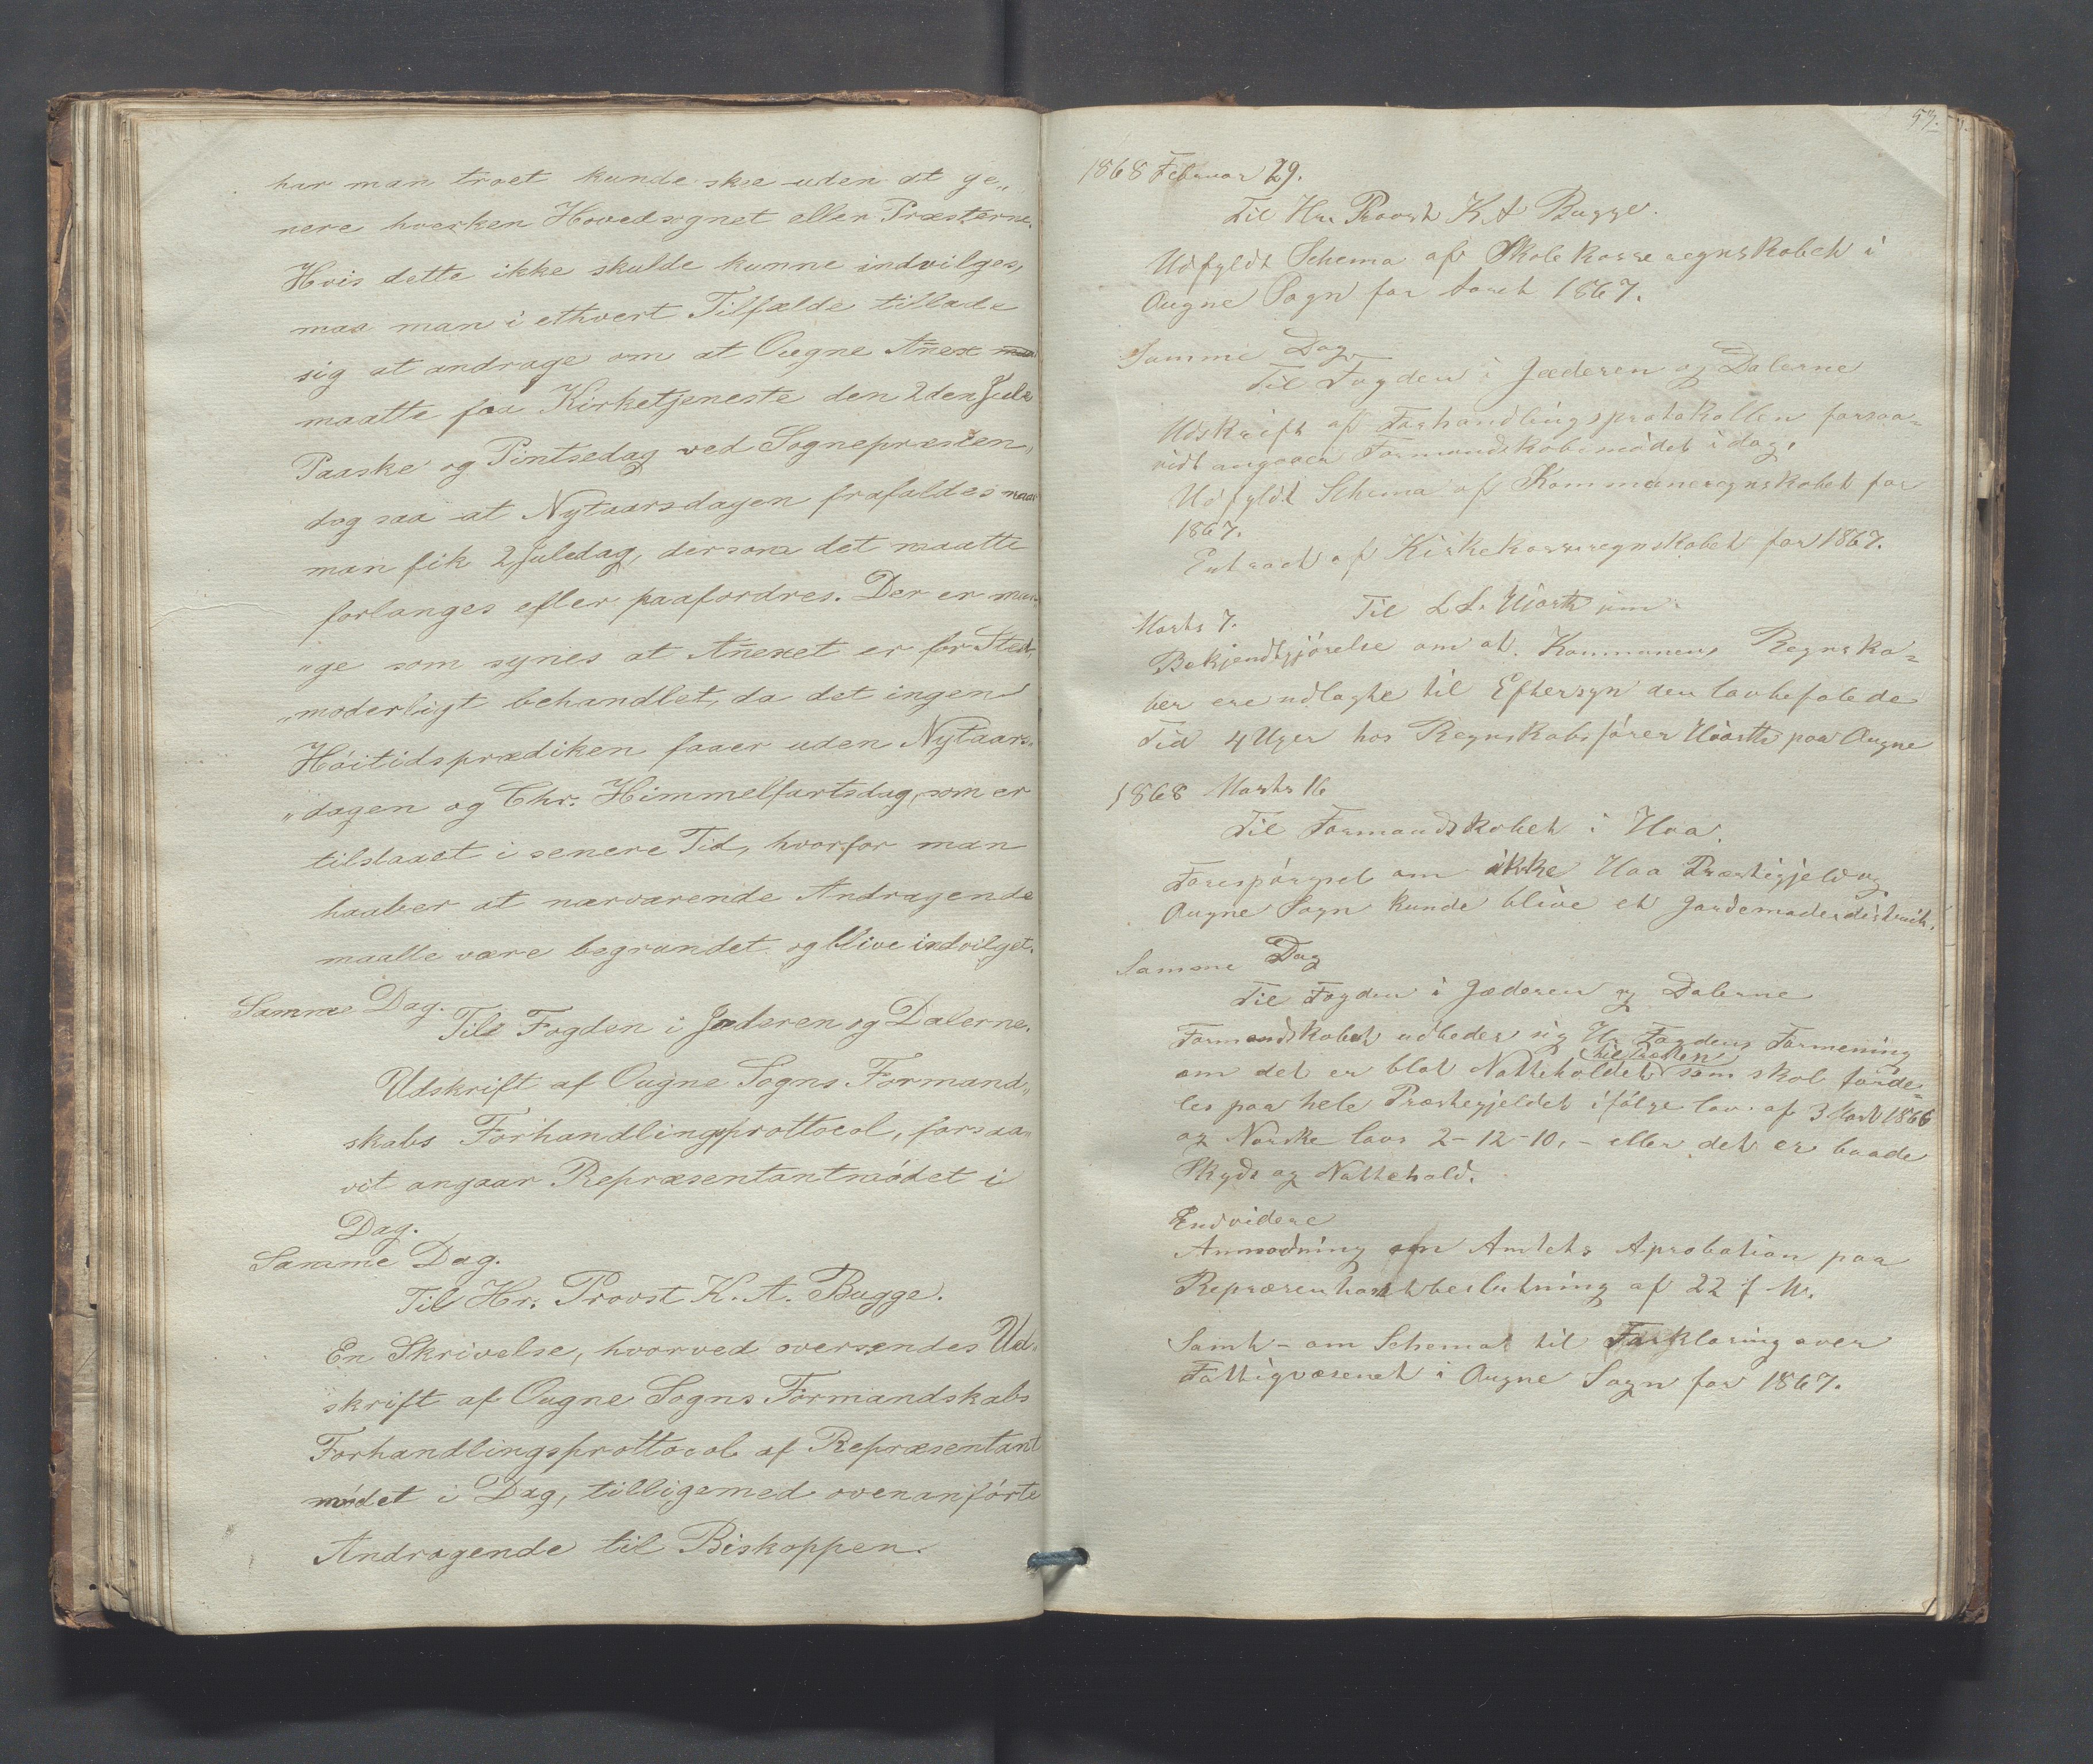 har man troet kunde skee uden at ge„
nere hverken Hovedsognet eller Præsterne.
Hvis dette ikke skulde kunne indvilges,
maa man i ethvert Tilfælde tillade
sig at andrage om at Ougne Añex
maatte faa Kirketjeneste den 2den Jule
Paaske og Pintsedag ved Sognepræsten,
dog saa at Nytaarsdagen frafaldes naar
man fik 2 Juledag, dersom det maatte
forlanges eller paafordres. Der er man„
„ge som synes at Añexet er for Sted„
„moderligt behandlet, da det ingen
Höitidsprædiken faaer uden Nytaars„
„dagen og Chr. Himmelfartsdag, som er
tilstaaet i senere Tid, hvorfor man
haaber at nærværende Andragende
maatte være begrundet og blive indvilget.
Samme Dag.
Till Fogden i Jæderen og Dalerne.
Udskrift af Ougne Sogns Formand„
skabs Forhandlingsprottocol, forsaa„
vit angaar Repræsentantmödet i
Dag.
Samme Dag.
Til Hr. Provst K. A. Bugge.
En Skrivelse, hvorved oversendes Ud„
skrift af Ougne Sogns Formandskabs
Forhandlingsprottocol af Repræsentant
mödet i Dag, tilligemed ovenanförte
Andragende til Biskoppen.
57.
1868 Februar 29.
Til Hr. Provst K A Bugge.
Udfyldt Schema af Skolekasseregnskabet i
Ougne Sogn for Aaret 1867.
Samme Dag
Til Fogden i Jæderen og Dalerne
Udskrift af Forhandlingsprotokollen forsaa=
vidt angaaer Formandskabsmödet idag.
Udfyldt Schema af Kommuneregnskabet for
1867.
Extract af Kirkekasseregnskabet for 1867.
Marts 7. Til L L. Hiorth jun
Bekjendtgjörelse om at Kommunens Regnska=
ber ere udlagte til Eftersyn den lovbefalede
Tid 4 Uger hos Regnskabsförer Hiorth paa Ougne
1868 Marts 16
Til Formandskabet i Haa.
Forespörgsel om ikke Haa Præstegjeld og
Ougne Sogn kunde blive et Jordemoderdistrict.
Samme Dag
Til Fogden i Jæderen og Dalerne
Formandskabet udbeder sig Hr Fogdens Formening
om det er blot Natteholdet som skal forde=
les paa hele Præstegjeldet ifölge lov af 3 Marts 1866
og Norske lovs 2-12-10, – eller det er baade
Skyds og Nattehold.
Endvidere
Anmodning om Amtets Aprobation paa
Repræsentantbeslutning af 22 f M.
Samt – om Schemat til Forklaring over
Fattigvæsenet i Ougne Sogn for 1867.